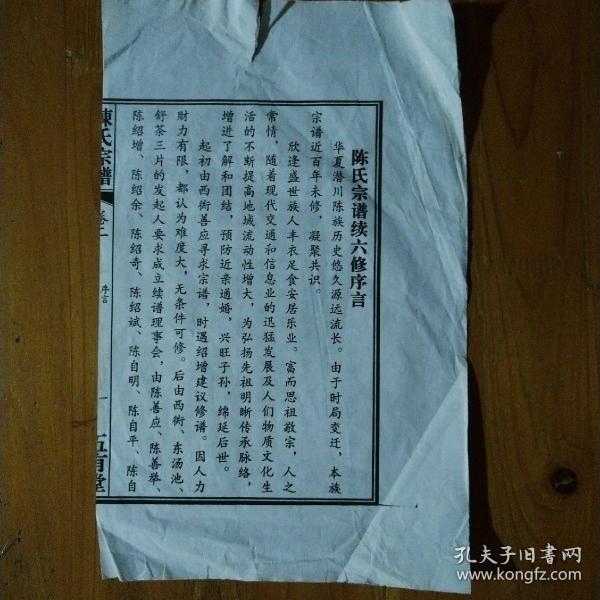 陈氏宗谱续六修序言
华夏潜川陈族历史悠久源远流长。由于时局变迁，本族
宗谱近百年未修，凝聚共识。
欣逢盛世族人丰衣足食安居乐业。富而思祖敬宗，人之
常情，随着现代交通和信息业的迅猛发展及人们物质文化生
活的不断提高地域流动性增大，为弘扬先祖明晰传承脉络，
增进了解和团结，预防近亲通婚，兴旺子孙，绵延后世。
起初由西衖善应寻求宗谱，时遇绍增建议修谱。因人力
财力有限，都认为难度大，无条件可修。后由西衖、东汤池、
舒茶三片的发起人要求成立续谱理事会，由陈善应、陈善举、
陈绍增、陈绍余、陈绍奇、陈绍斌、陈自明、陈自平、陈自
陳氏宗譜
卷一
序言
一
五有堂
孔夫子旧书网
www.kongfz.com